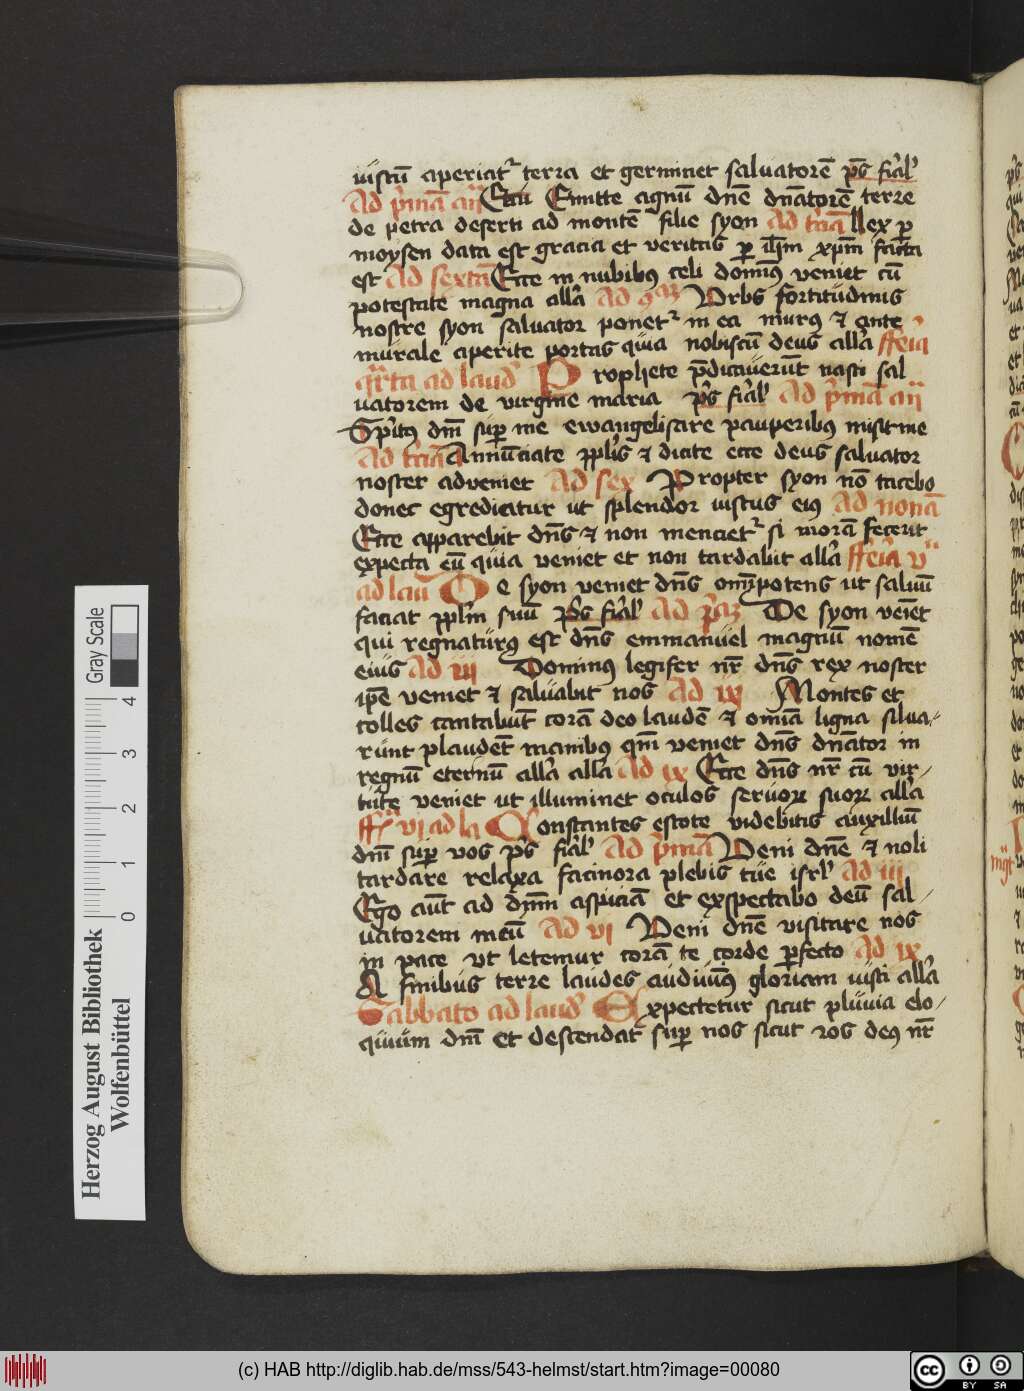 iustū aperiatr terra et germinet saluatorē ps̄ fial
Ad pmā an Emitte agnū dnē dnatorē terre
de petra deserti ad montē filie syon Ad tciā Lex p
moysen data est gracia et veritas p ihm xpm facta
est Ad sextā Ecce in nubibus celi dominus veniet cū
potestate magna alla Ad Vrbs fortitudinis
nostre syon saluator ponetr in ea murus et ante
murale aperite portas quia nobiscū deus alla fferia
qrta ad laud Prophete pdicauerūt nasci sal
uatorem de virgine maria ps̄ fial Ad pmā an
Spiritus dm̄ sup me ewangelisare pauperibus misit me
Ad tciā Annūciate pplis et dicite ecce deus saluator
noster adveniet Ad sex Propter syon nō tacebo
donec egrediatur ut splendor iustus eius Ad nonā
Ecce apparebit dns̄ et non mencietr si morā fecerit
expecta eū quia veniet et non tardabit alla fferia v
ad lau De syon veniet dns̄ omipotens ut saluū
faciat pplm suū ps̄ fial Ad p̄ De syon veiet
qui regnaturus est dns̄ emmanuel magnū nomē
eius Ad iii Dominus legifer nr̄ dns̄ rex noster
ipe veniet et saluabit nos Ad ix Montes et
colles cantabūt corā deo laudē et omīa ligna silua-
rūnt plaudēt manibus qm̄ veniet dns̄ dnator in
regnū eternū alla alla Ad ix Ecce dns̄ nr̄ cū vir-
tute veniet ut illuminet oculos seruoꝝ suoꝝ alla
ffr vi ad la Constantes estote videbitis auxiliū
dm̄ sup vos ps̄ fial Ad pmā Veni dnē et noli
tardare relaxa facinora plebis tue isrl Ad iii
Ego aūt ad dm̄m aspiciā et exspectabo deū sal-
uatorem meū Ad vi Veni dnē visitare nos
in pace vt letemur corā te corde pfecto Ad ix
A finibus terre laudes audiuim̄9 gloriam iusti alla
Sabbato ad laud Expectetur sicut pluuia elo-
quium dm̄ et descendat sup nos sicut ros deus nr̄
Gray Scale
0 1 2 3 4
Herzog August Bibliothek
Wolfenbüttel
(c) HAB http://diglib.hab.de/mss/543-helmst/start.htm?image=00080
cc BY SA